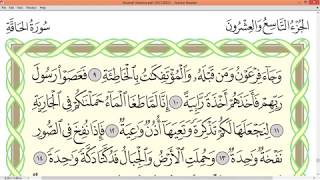 الجُزْءُ التَّاسِعُ وَالعِشْرُونَ
سُورَةُ الحَاقَّةِ
وَجَآءَ فِرْعَوْنُ وَمَن قَبْلَهُۥ وَٱلْمُؤْتَفِكَٰتُ بِٱلْخَاطِئَةِ ٩ فَعَصَوْا۟ رَسُولَ
رَبِّهِمْ فَأَخَذَهُمْ أَخْذَةً رَّابِيَةً ١٠ إِنَّا لَمَّا طَغَا ٱلْمَآءُ حَمَلْنَٰكُمْ فِى ٱلْجَارِيَةِ
١١ لِنَجْعَلَهَا لَكُمْ تَذْكِرَةً وَتَعِيَهَآ أُذُنٌ وَٰعِيَةٌ ١٢ فَإِذَا نُفِخَ فِى ٱلصُّورِ
نَفْخَةٌ وَٰحِدَةٌ ١٣ وَحُمِلَتِ ٱلْأَرْضُ وَٱلْجِبَالُ فَدُكَّتَا دَكَّةً وَٰحِدَةً ١٤